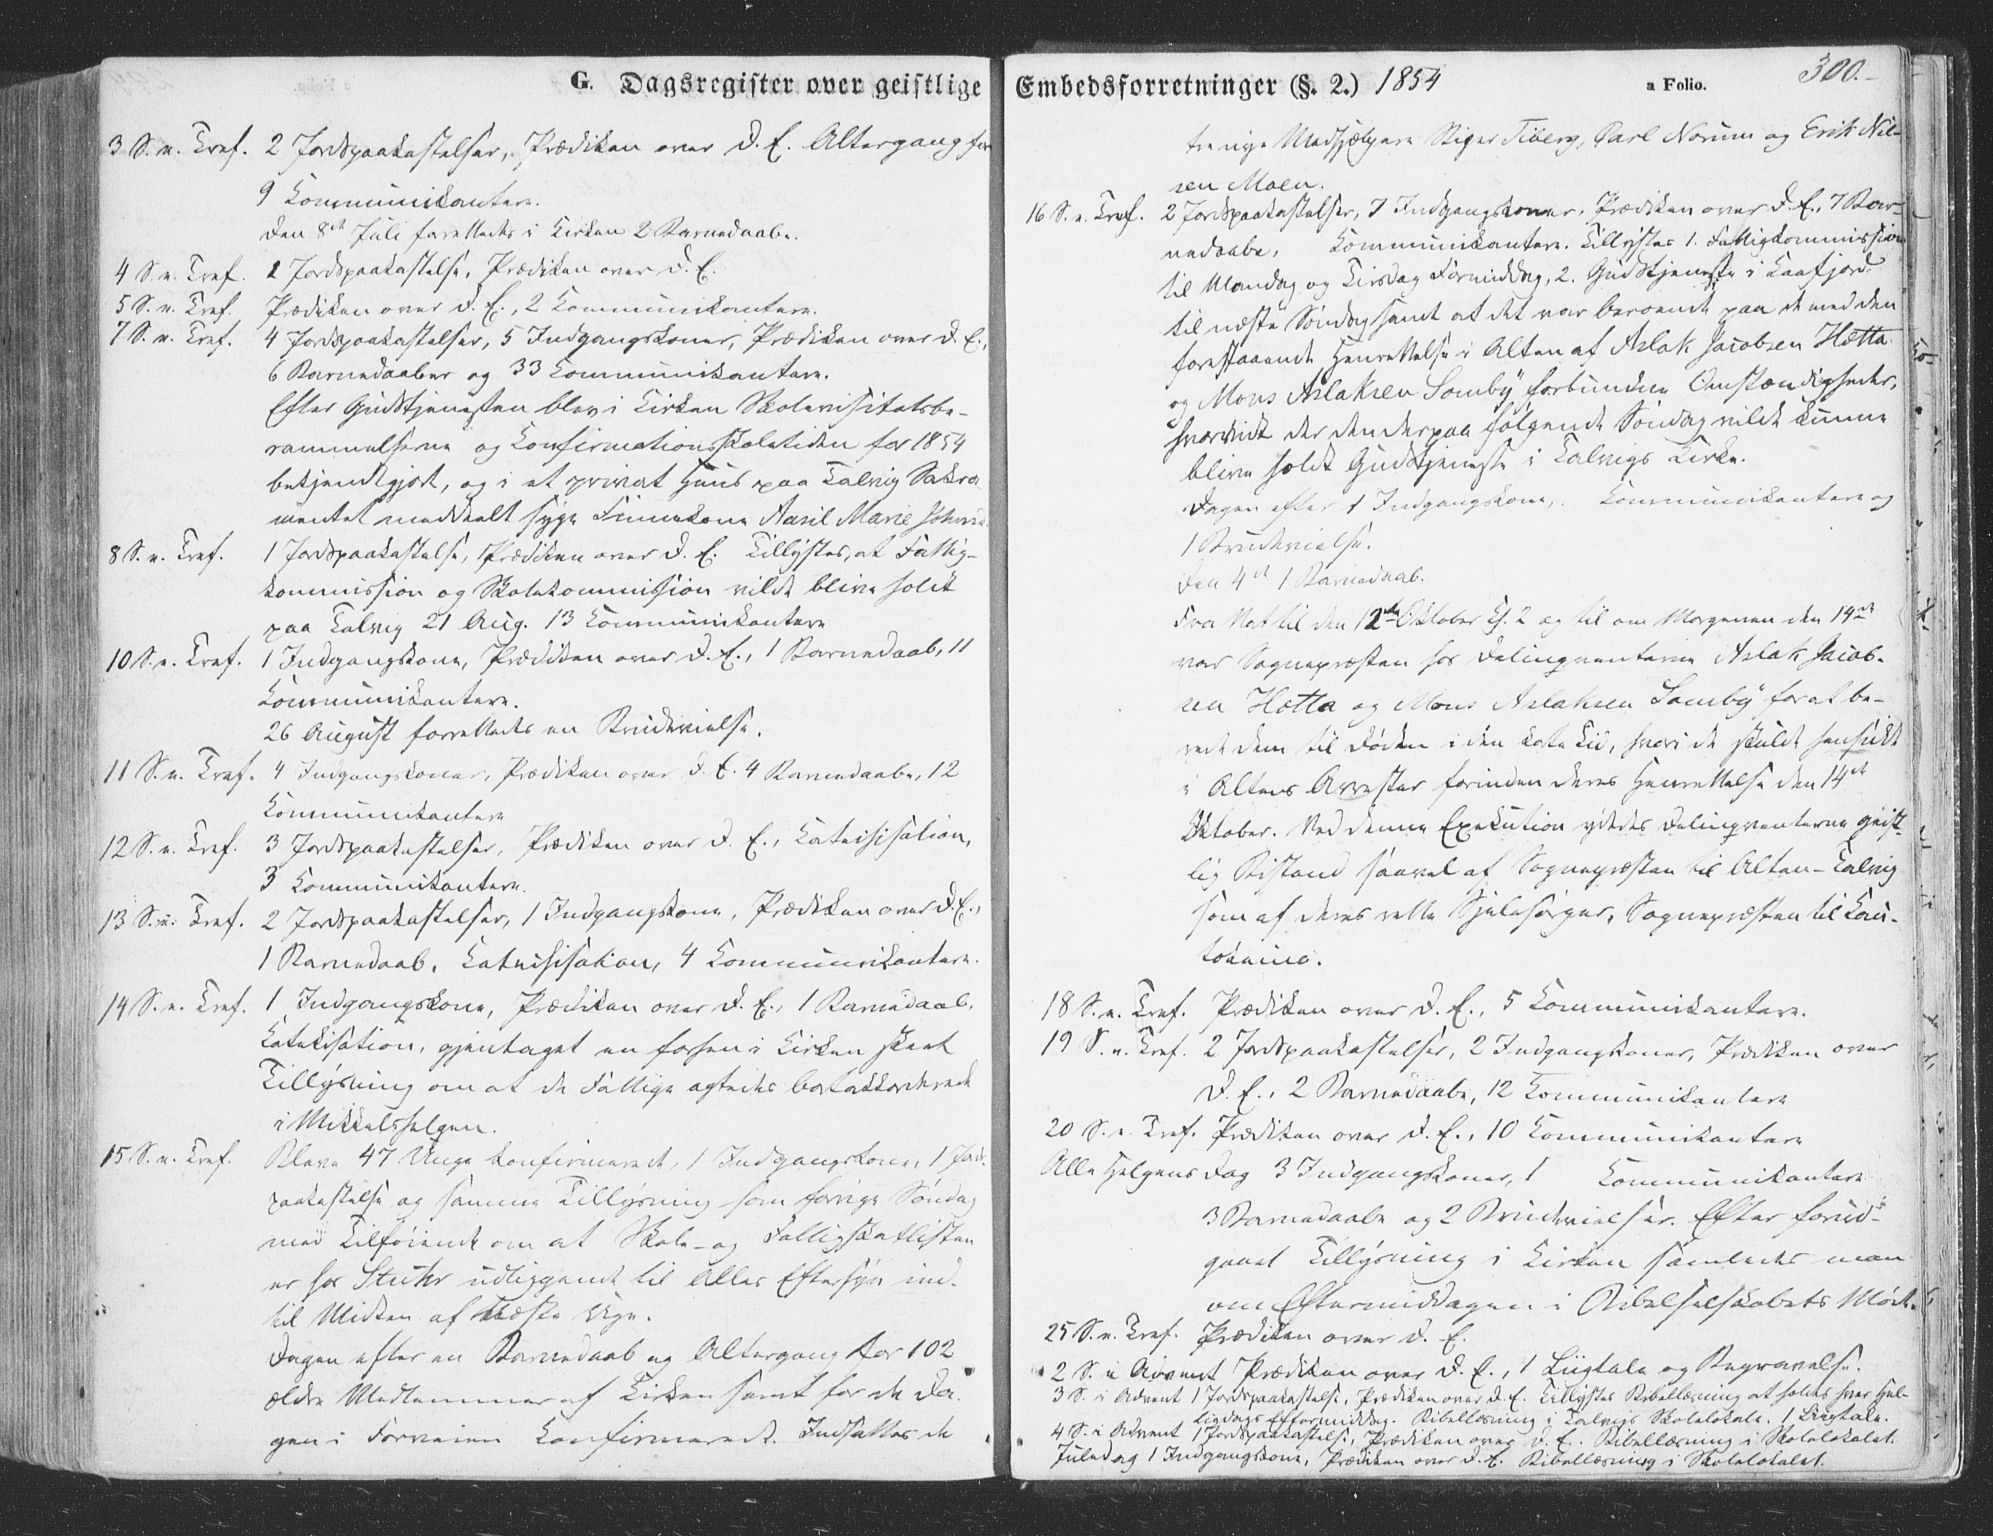 G. Dagsregister over geistlige
3 S. e. Tref. 2 Jordspaakastelser, Prædiken over D. E. Altergang for
9 Kommunikantere.
Den 8de Juli forrettedes i Kirken 2 Barnedaabe.
4 S. e. Tref. 1 Jordspaakastelse, Prædiken over D. E.
5 S. e. Tref. Prædiken over D. E., 2 Kommunikantere.
7 S. e. Tref. 4 Jordspaakastelser, 5 Indgangskoner, Prædiken over D. E.,
6 Barnedaaber og 33 Kommunikantere.
Efter Gudstjenesten blev i Kirken Skolevisitatsbe-
rammelserne og Konfirmationsskoletiden for 1854
bekjendtgjort, og i et privat Huus paa Talvig Sakra
mentet meddeelt syge Finnekone Aasil Marie
8 S. e. Tref. 1 Jordspaakastelse, Prædiken over D. E. Tillystes, at Fattig-
kommission og Skolekommission vilde blive holdt
paa Talvig 21 Aug. 13 Kommunikantere
10 S. e. Tref. 1 Indgangskone, Prædiken over D. E., 1 Barnedaab, 11
Kommunikantere.
26 August forrettedes en Brudevielse.
11 S. e. Tref. 4 Indgangskoner, Prædiken over D. E. 4 Barnedaabe, 12
Kommunikantere
12 S. e. Tref. 3 Jordspaakastelser, Prædiken over D. E., Katechisation,
3 Kommunikantere.
13 S. e. Tref. 2 Jordspaakastelser, 1 Indgangskone, Prædiken over D. E.,
1 Barnedaab, Katechisation, 4 Kommunikantere.
14 S. e. Tref. 1 Indgangskone, Prædiken over D. E., 1 Barnedaab,
Katekisation, gjentaget en forhen i Kirken skeet
Tillysning om at de Fattige agtedes bortakkorderede
i Mikkelshelgen.
15 S. e. Tref. Bleve 47 Unge konfirmerede, 1 Indgangskone, 1 Jords
paakastelse og samme Tillysning som forrige Søndag
med Tilføiende om at Skole- og Fattigskatlisten
er hos Stuhr udliggende til Alles Eftersyn ind-
til Midten af Næste Uge.
Dagen efter en Barnedaab og Altergang for 102
ældre Medlemmer af Kirken samt for de Da-
gen i Forveien Konfirmerede. Indsattes de
Embedsforretninger (§. 2.) 1854 a Folio. 300.-
tre nye Medhjælpere Tiberg, Carl Norum og Erik Nil-
sen Moen.
16 S. e. Tref. 2 Jordspaakastelser, 7 Indgangskoner, Prædiken over D. E., 7 Bar-
nedaabe, Kommunikantere. Tillystes 1. Fattigkommission
til Mandag og Tirsdag Formiddag, 2. Gudstjeneste i Kaafjord
til næste Søndag samt at det var beroende paa de med den
forestaaende Henrettelse i Alten af Aslak Jacobsen Hætta
og Mons Aslaksen Somby forbundne Omstændigheder,
hvorvidt der den derpaa følgende Søndag vilde kunne
blive holdt Gudstjeneste i Talvigs Kirke.
Dagen efter 1 Indgangskone, Kommunikantere og
1 Brudevielse.
Den 4de 1 Barnedaab.
Fra Nat til den 12te Oktober Kl. 2 og til om Morgenen den 14de
var Sognepræsten hos Delinqventerne Aslak Jacob-
sen Hætta og Mons Aslaksen Somby for at be-
rede dem til Døden i den korte Tid, hvori de skulde hensidde
i Altens Arrester forinden deres Henrettelse den 14de
Oktober. Ved denne Exekution ydedes Delinqventerne geist-
lig Bistand saavel af Sognepræsten til Alten-Talvig
som af deres rette Sjelesørger, Sognepræsten til Kau-
tokeino.
18 S. e. Tref. Prædiken over D. E., 5 Kommunikantere.
19 S. e. Tref. 2 Jordspaakastelser, 2 Indgangskoner, Prædiken over
D. E., 2 Barnedaabe, 12 Kommunikantere
20 S. e. Tref. Prædiken over D. E., 10 Kommunikantere
Alle Helgens Dag 3 Indgangskoner, 1 Kommunikantere
3 Barnedaabe og 2 Brudevielser. Efter forud-
gaaet Tillysning i Kirken samledes man
om Eftermiddagen i Bibelselskabets Møde.
25 S. e. Tref. Prædiken over D. E.
2 S. i Advent Prædiken over D. E., 1 Liigtale og Begravelse.
3 S. i Advent 1 Jordspaakastelse, Prædiken over D. E. Tillystes Bibellæsning at holdes hver Hel-
ligdags Eftermiddag. Bibellæsning i Talvigs Skolelokale. 1 Liigtale.
4 S. i Advent 1 Jordspaakastelse, Prædiken over D. E. Bibellæsning i Skolelokalet.
Juledag 1 Indgangskone, Prædiken over D. E. Bibellæsning i Skolelokalet.